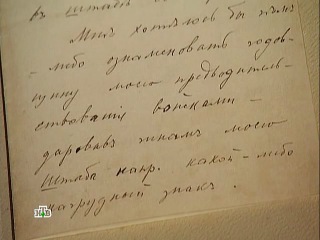 въ штабѣ
Мнѣ хотѣлось бы чѣмъ
- либо ознаменовать годов-
щину моего предводитель-
ствованія войсками -
даровавъ чинамъ моего
Штаба напр. какой-либо
нагрудный знакъ.
НТВ